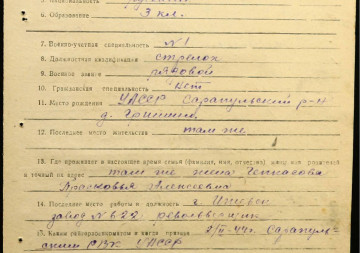 6. Образование 3 кл.
7. Военно-учетная специальность №1
8. Должностная квалификация стрелок
9. Военное звание рядовой
10. Гражданская специальность нет
11. Место рождения УАССР Сарапульский р-н
д.
12. Последнее место жительства там же
13. Где проживает в настоящее время семья (фамилия, имя, отчество) жены или родителей
и точный их адрес там же жена
Прасковья Алексеевна
14. Последнее место работы и должность г. Ижевск
завод № 622
15. Каким райвоенкоматом и когда призван 44г. Сарапуль-
ским РВК УАССР